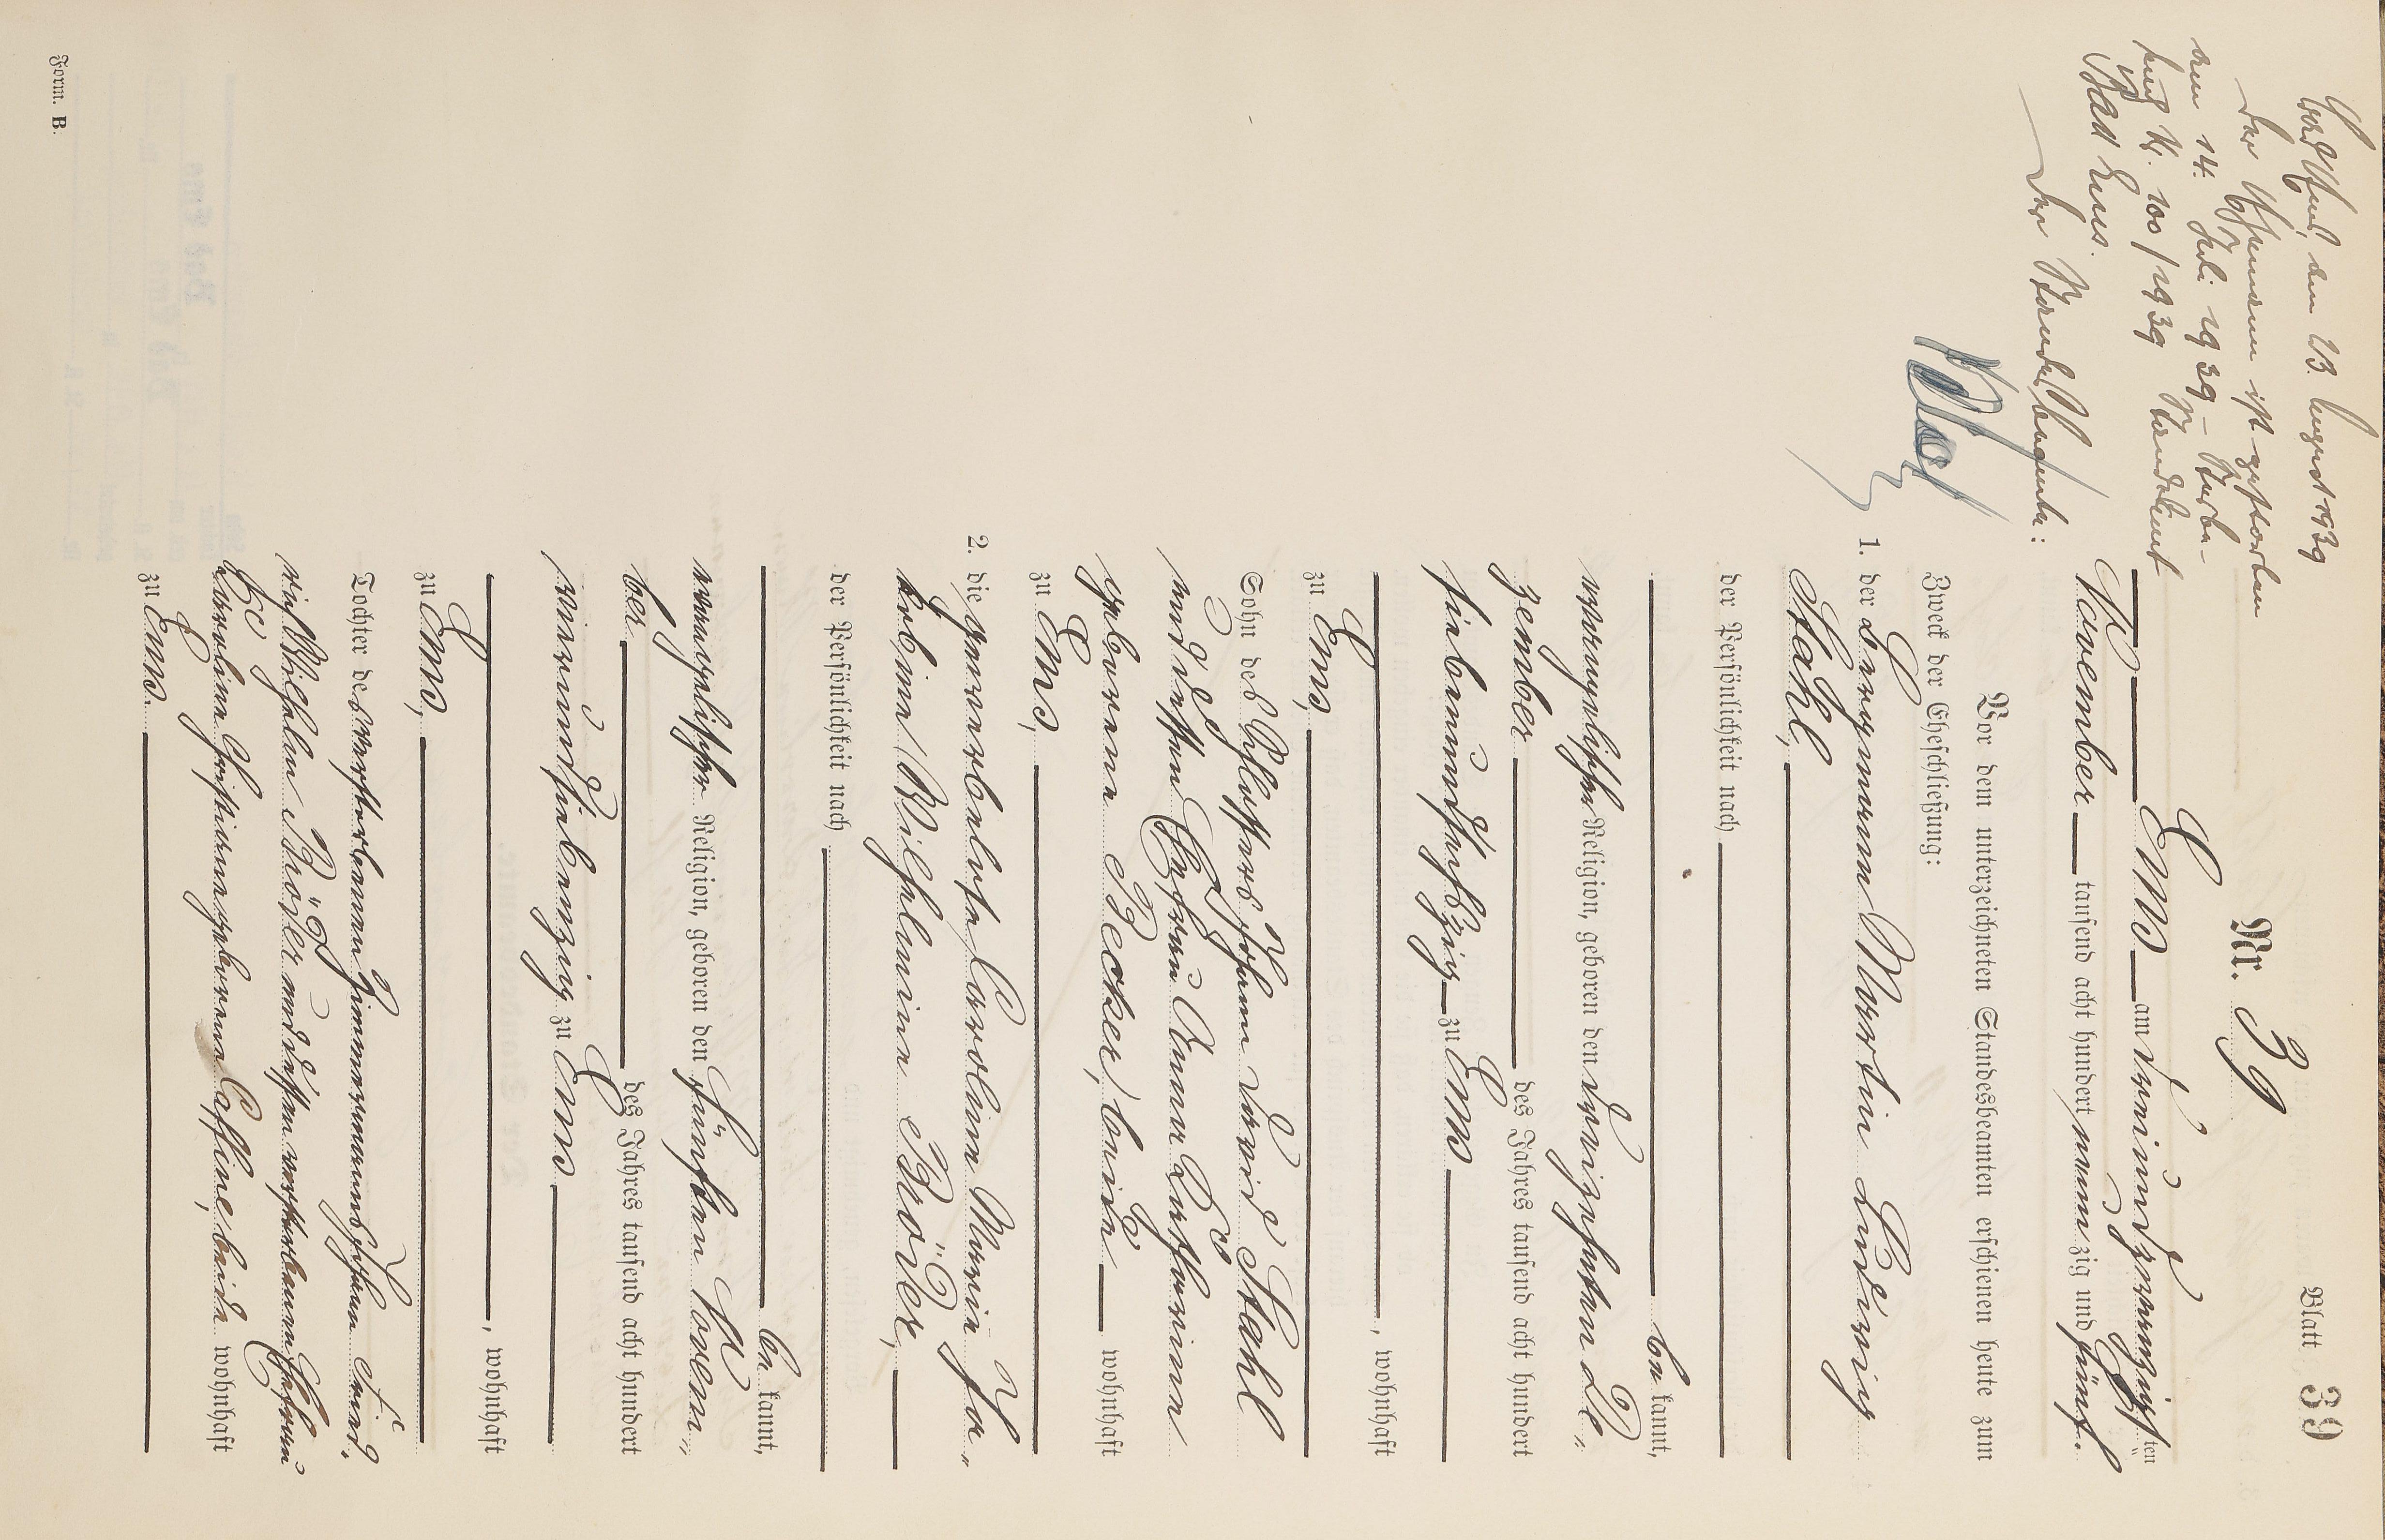 Blatt 39
Nr. 39
Ems am dreiundzwanzigsten
November tausend acht hundert neunzig und fünf.
Vor dem unterzeichneten Standesbeamten erschienen heute zum
Zweck der Eheschließung:
1. der Bergmann Martin Ludwig
Stahl,
der Persönlichkeit nach
bekannt,
evangelischer Religion, geboren den dreizehnten De„
zember des Jahres tausend acht hundert
siebenundsechszig zu Ems
, wohnhaft
zu Ems,
Sohn des Schlossers Johann David Stahl
und dessen Ehefrau Anna Katharina
geborene Becker, beide wohnhaft
zu Ems,
2. die gewerbelose Caroline Maria Ja„
kobine Wilhelmine Bröder,
der Persönlichkeit nach
bekannt,
evangelischer Religion, geboren den fünften Novem„
ber des Jahres tausend acht hundert
vierundsiebenzig zu Ems
, wohnhaft
zu Ems,
Tochter des verstorbenen Zimmermanns Johann Fried„
rich Wilhelm Bröder und dessen verstorbenen Ehefrau
Karoline Christiane geborene Essline, beide wohnhaft
zu Ems.
den 23. August 1939
Der Ehemann ist gestorben
am 14. Juli 1939 – Sterbe-
buch Nr. 100/1939 Standesamt
Bad Ems.
Der Standesbeamte:
Form. B.